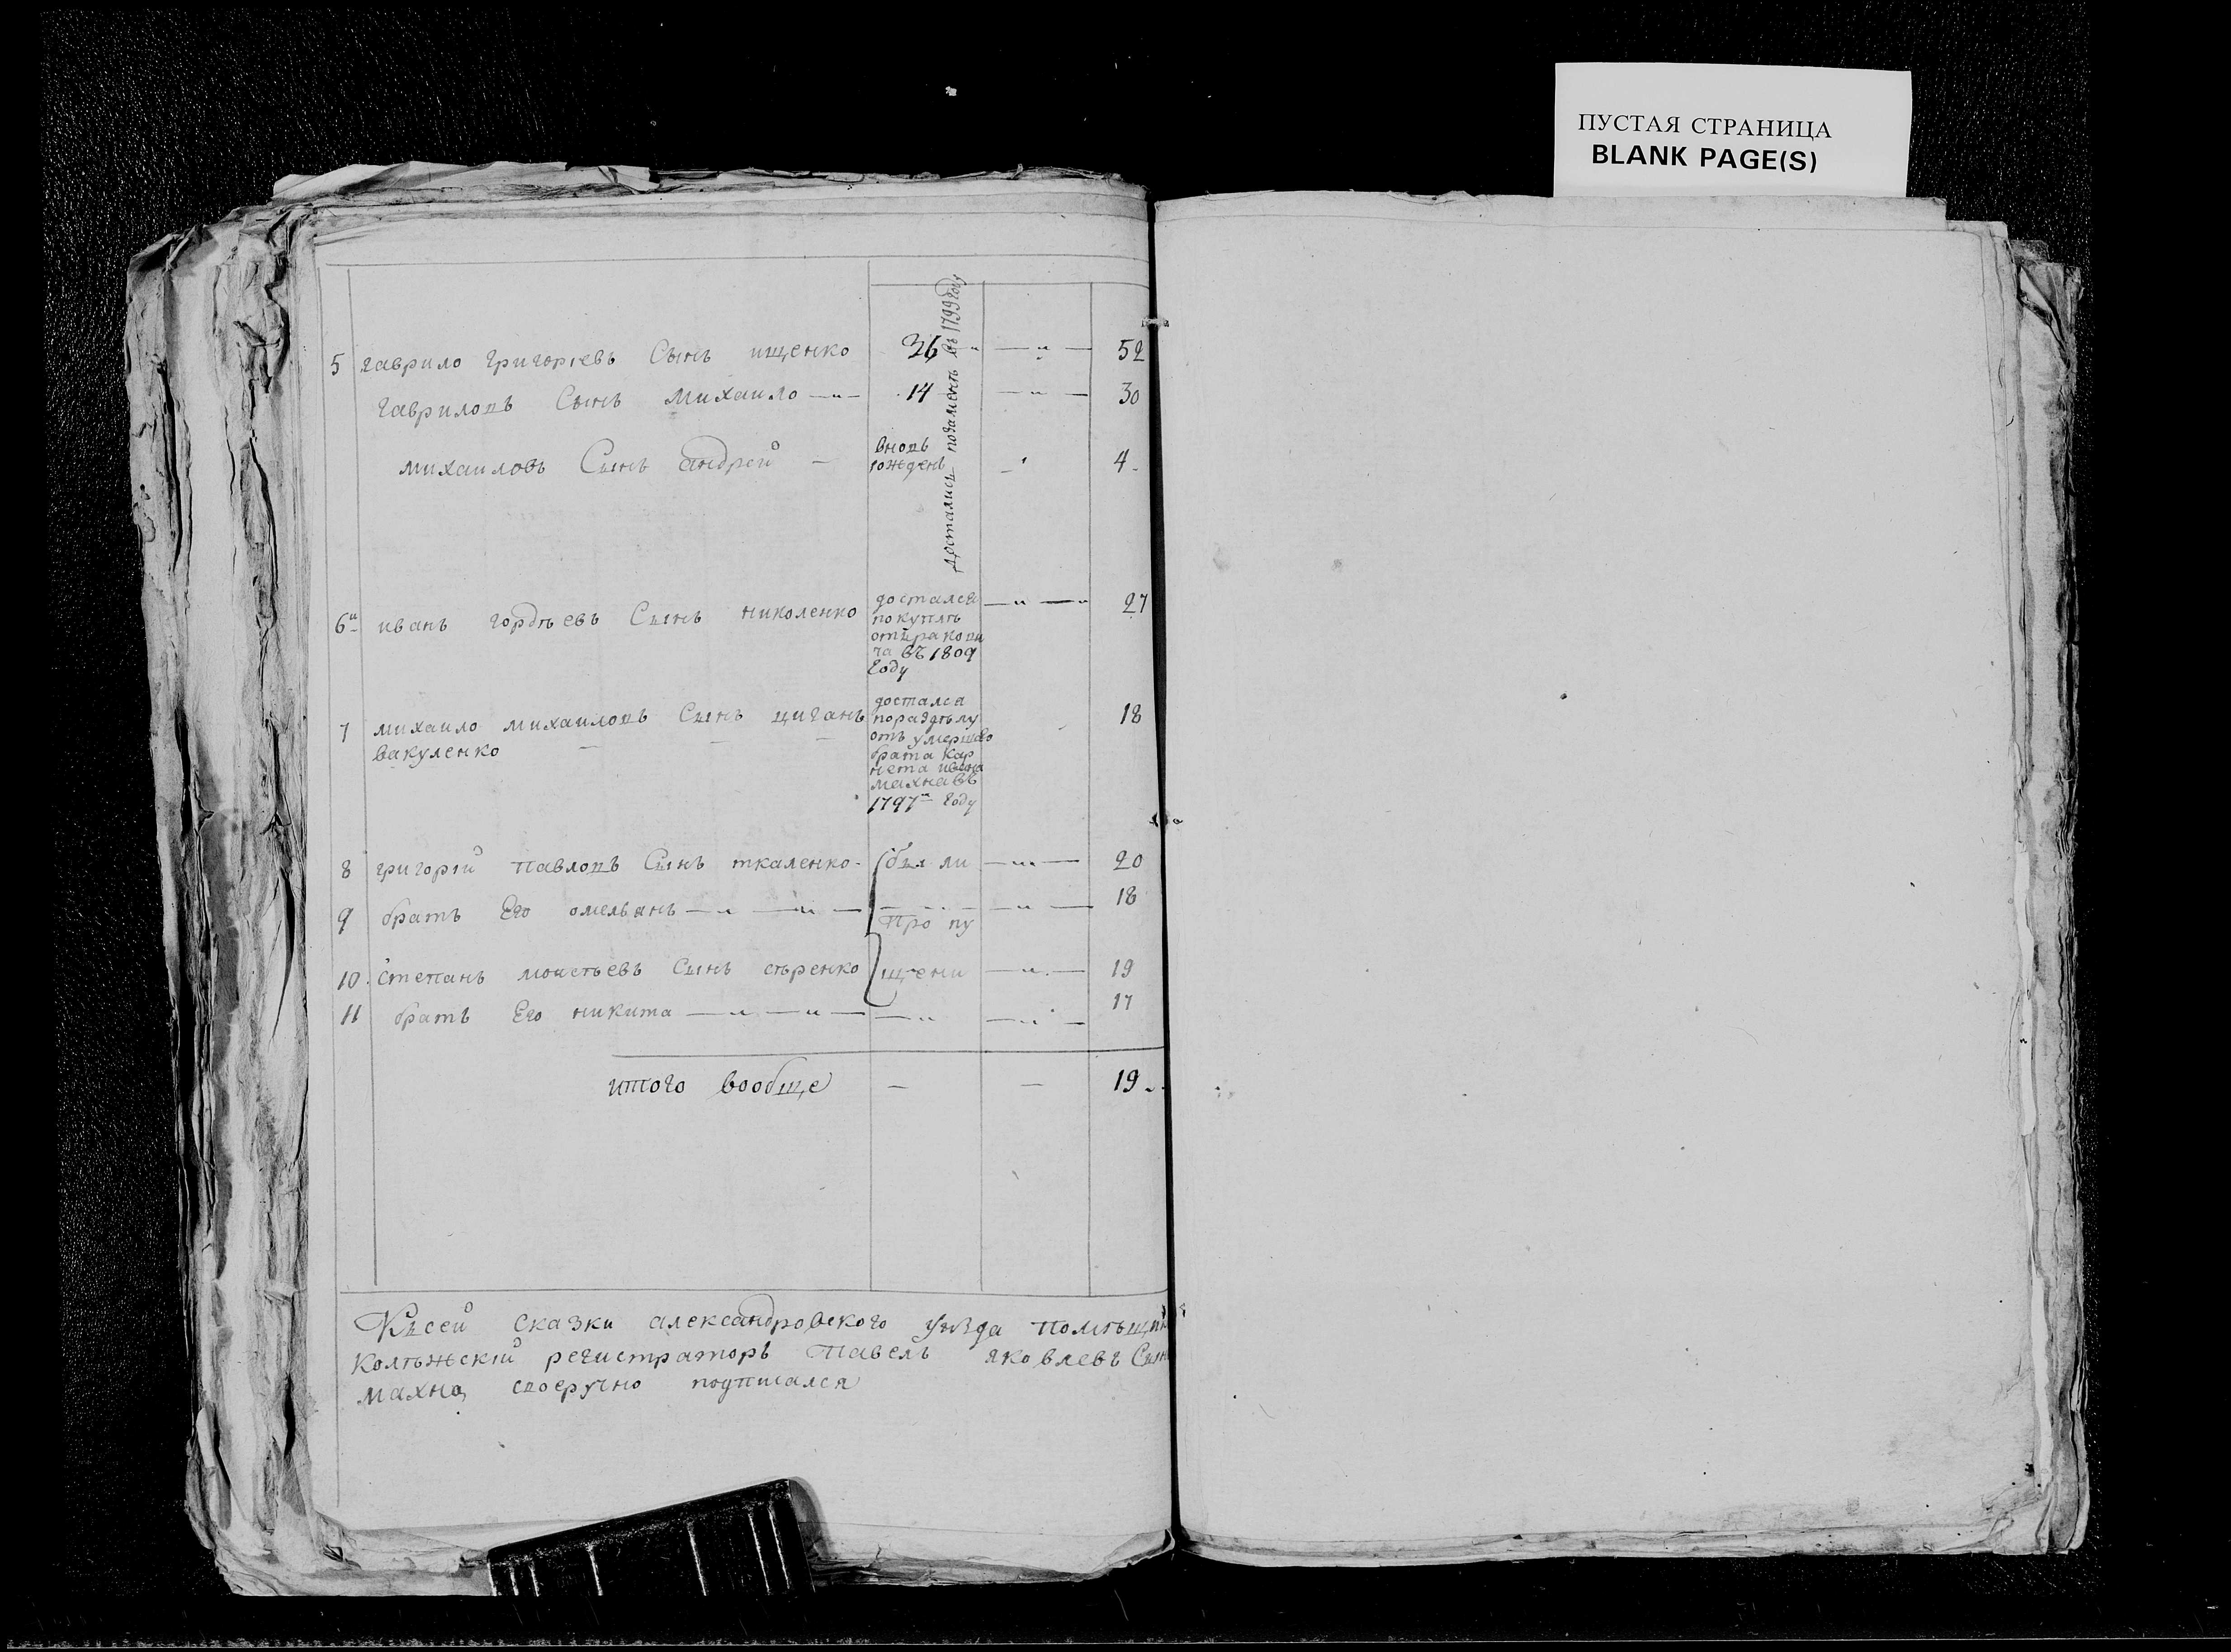 ПУСТАЯ СТРАНИЦА
BLANK PAGE(S)
5 гаврило григорїевъ Сынъ ищенко 36 —„— —„— 52
гавриловъ Сынъ михаило —„— 14 —„— 30
михаиловъ Сынъ андрей — вновь рожденъ — 4
Достались въ 1799 году
6й иванъ гордѣевъ Сынъ николенко —„— —„ 27
достался
покупкъ
ча въ 1809
году
7 михаило михаиловъ Сынъ циганъ 18
вакуленко — — —
достался
пораздѣлу
отъ умершаго
брата кор
нета ивана
махна въ
1797м году
8 григорїй павловъ Сынъ ткаленко - были —„— 20
9 братъ Его омельянъ —„— —„— —„— 18
про пу
10. Степанъ моисѣевъ Сынъ сѣренко щени —„— 19
11 братъ Его никита —„— —„— —„ —„— 17
итого вообще — — 19
Къ сей сказки александровского уѣзда помѣщик
колѣжскїй регистраторъ павелъ яковлевъ Сын
махно своеручно подписался